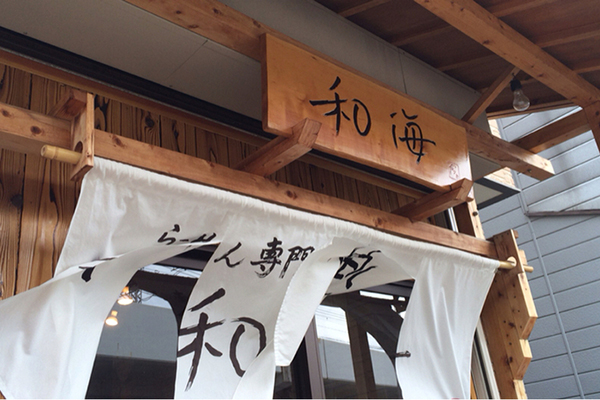 和海
らーめん専門
和